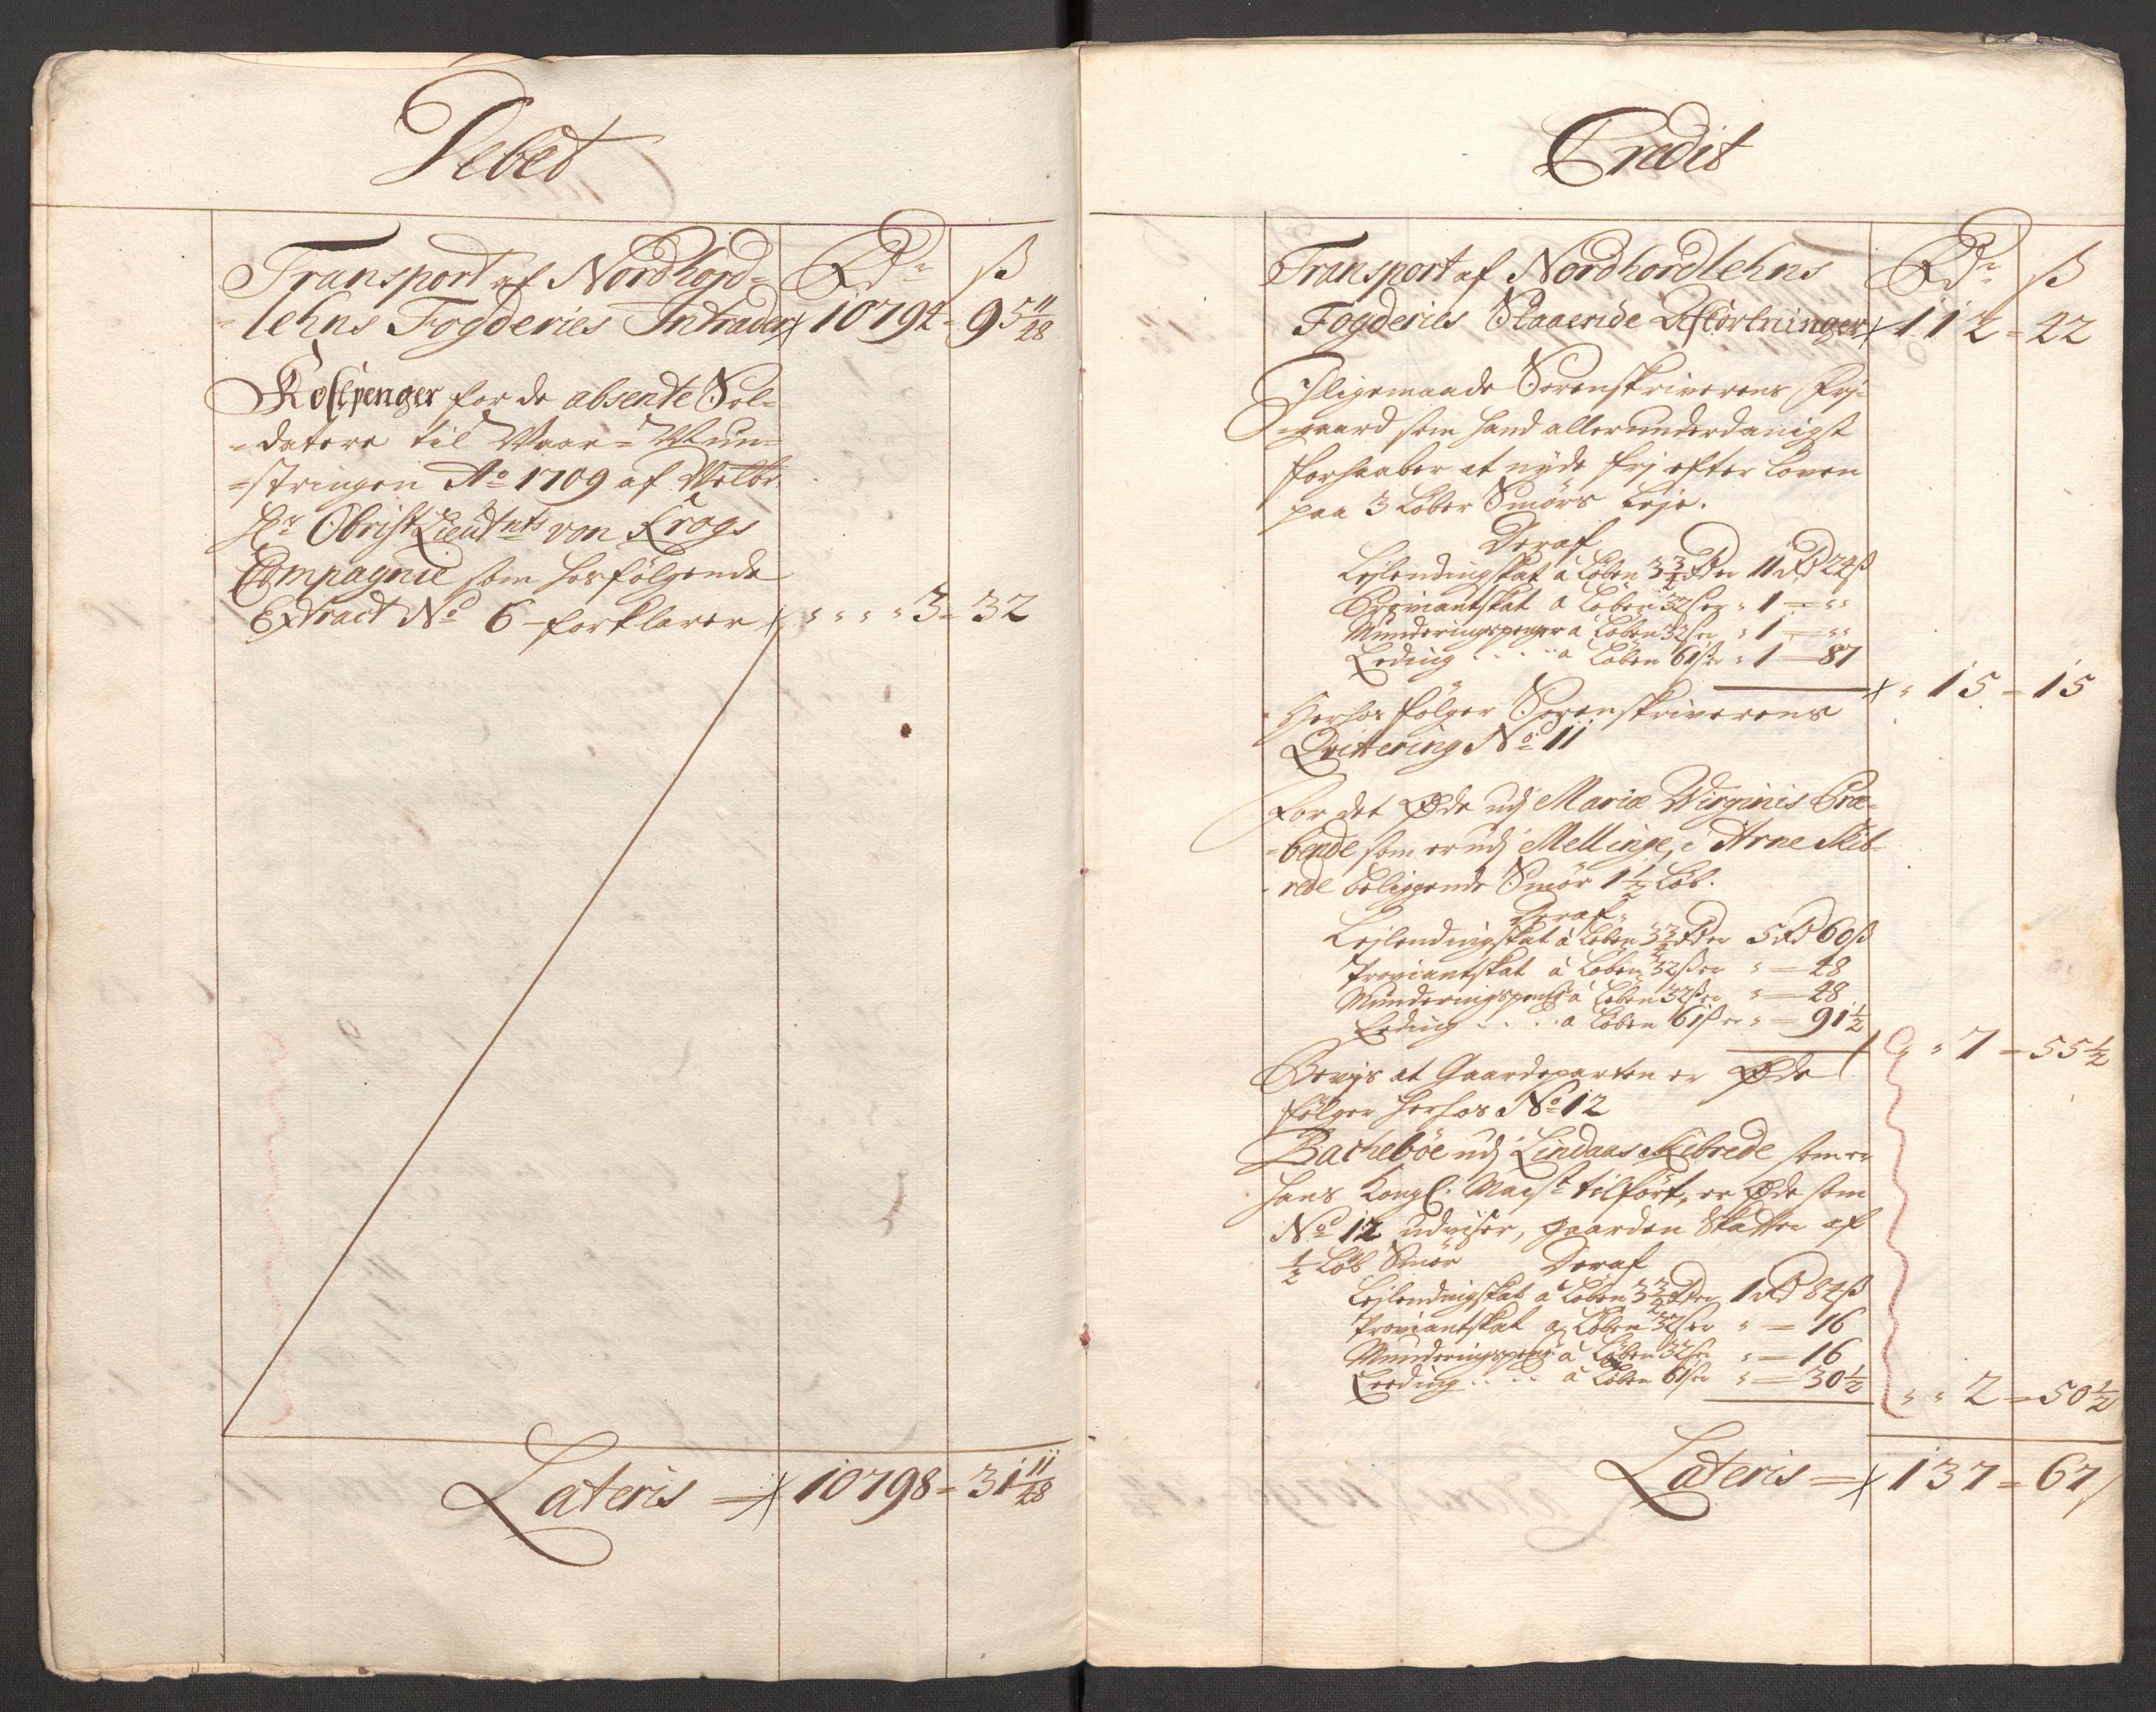 Debet
Transport af Nordhord= Rdr ß
=lehns Fogderies Intrader 10794 = 95 11/48
Kostpenger for de absente Sol=
=datere til Vaar= Mun=
=stringen Ao 1709 af Velbr.
Hr Obrist Lieutnts von Krogs
Compagnie som hosfølgende
Extract No 6 forklarer " " " " 3 = 32
Lateris = 10798 = 31 11/48
Credit
Transport af Nordhordlehns Rdr ß
Fogderies Staaende Afkortninger 112 = 42
Iligemaade Sorenskriverens Frj=
=gaard som hand allerunderdanigst
forhaaber at nyde frj efter Loven
paa 3 Løber Smørs Leje.
Deraf
Lejlendingskat à Løben 3 3/4 Rdr er 11 Rd 24 ß
Proviantskat à Løben 32 ß er " 1 = " "
Munderingspenger à Løben 32 ß er " 1 = " "
Leding . . . . à Løben 61 ß er " 1 = 87
" 15 = 15
Herhos følger Sorenskriverens
Qvittering No 11
For det Øde udj Mariæ Virginis Præ=
=bende som er udj Mellinge, i Arne Skib=
=rede beliggende Smør 1 1/2 Løb.
Deraf
Lejlendingskat à Løben 3 3/4 Rdr er 5 Rd 60 ß
Proviantskat à Løben 32 ß er " = 48
Munderingspeng à Løben 32 ß er " = 48
Leding . . . . à Løben 61 ß er " = 91 1/2
" " 7 = 55 1/2
Bevjs at Gaardeparten er Øde
følger herhos No 12
Bachebøe udj Lindaas Skibrede som er
Hans Kongl. Mayst tilført, er Øde som
No 12 udviser, gaarden Skatter af
1/2 Løb Smør Deraf
Lejlendingskat à Løben 3 3/4 Rdr er 1 Rd 84 ß
Proviantskat à Løben 32 ß er " = 16
Munderingspeng à Løben 32 ß er " = 16
Leeding . . . . à Løben 61 ß er " = 30 1/2
" " 2 = 50 1/2
Lateris = 137 = 67